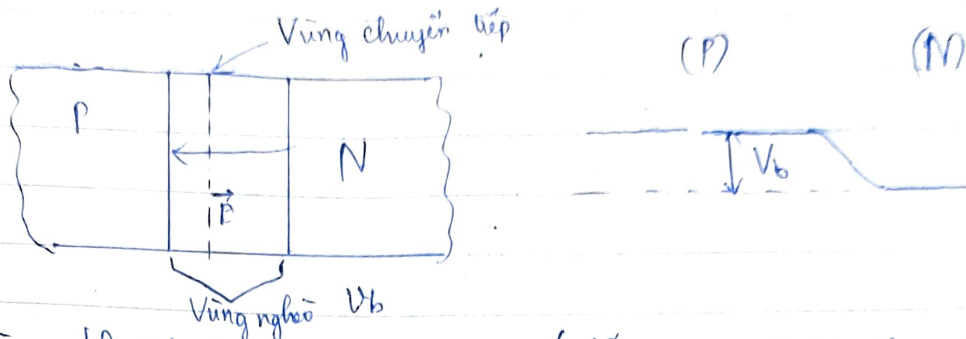 Vùng chuyển tiếp
(P) (N)
P
N
Vb
E
Vùng nghèo Vb